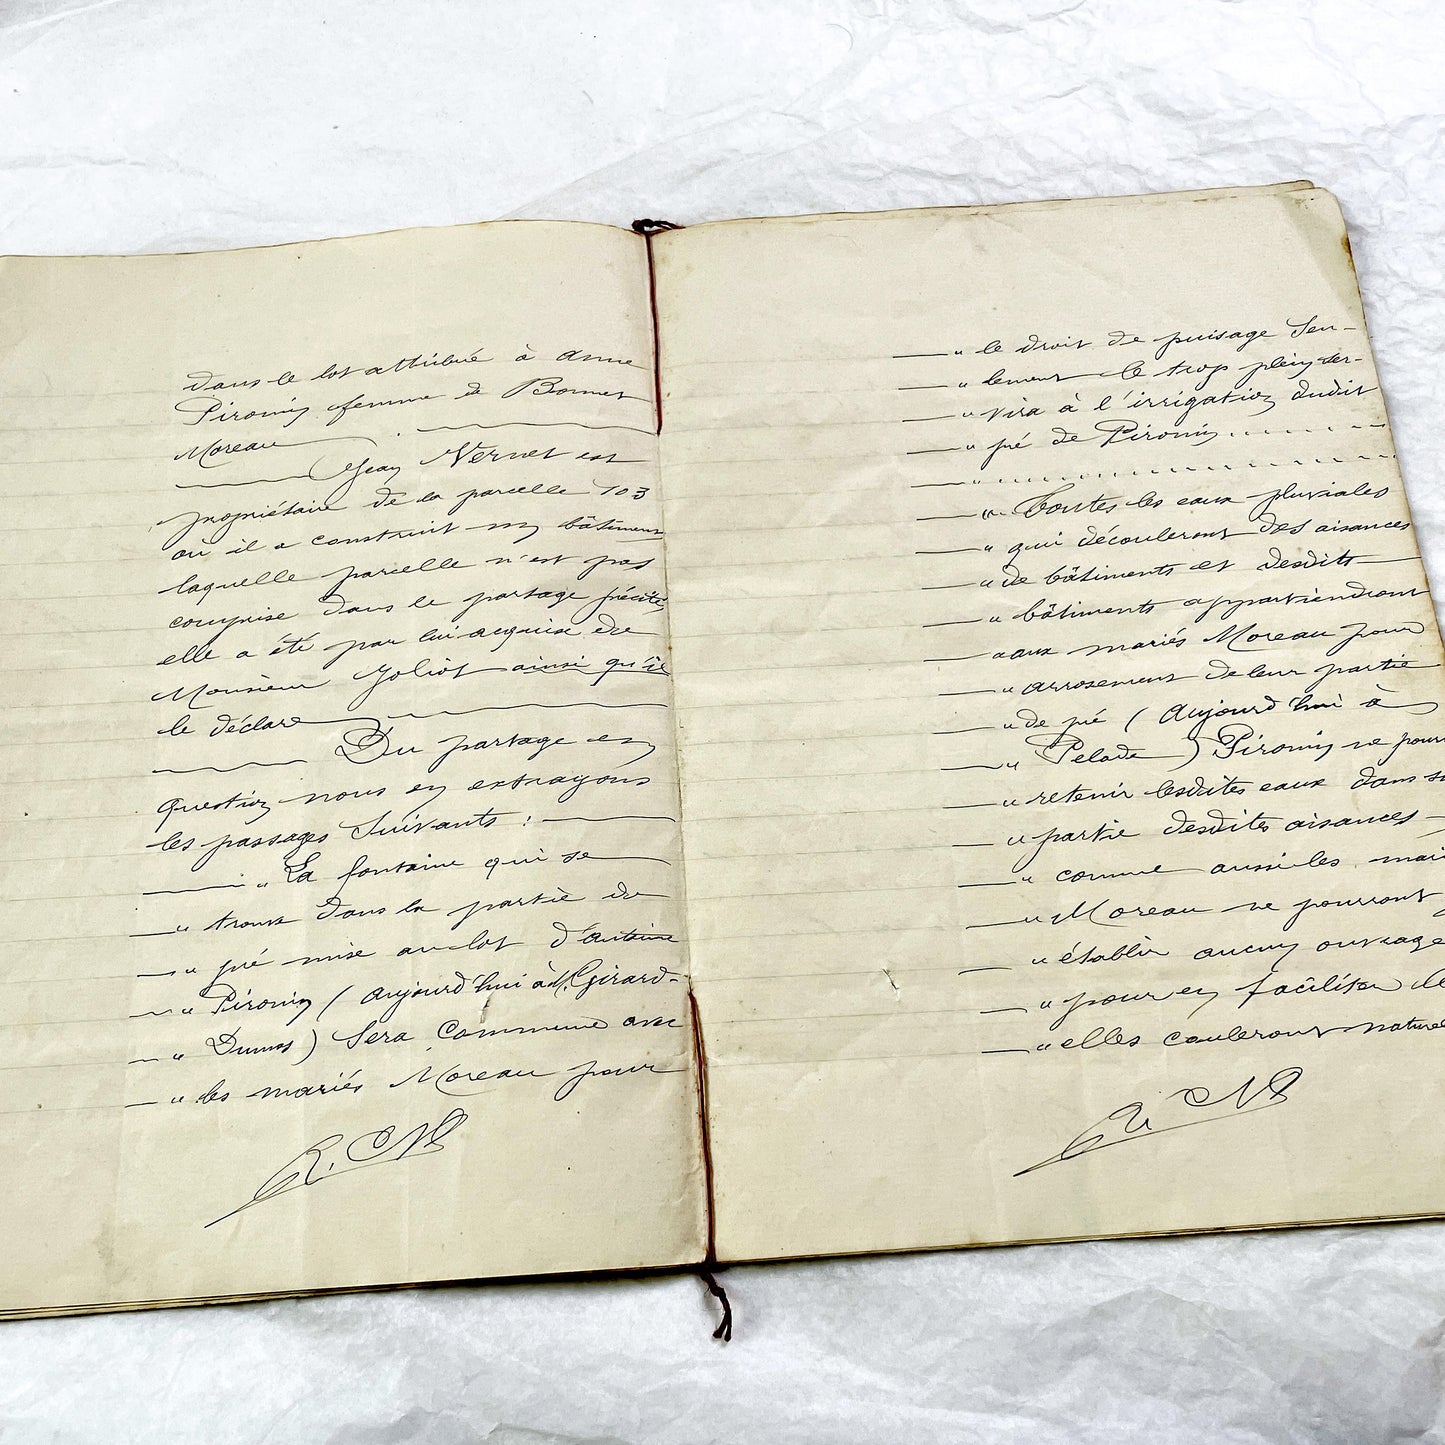 dans le lot attribué à Anne
Pironin femme de Bonnet
Moreau
Jean Vernet est
propriétaire de la parcelle 103
où il a construit un bâtiment
laquelle parcelle n'est pas
comprise dans le partage précité,
elle a été par lui acquise de
Monsieur Joliot ainsi qu'il
le déclare
Du partage en
question nous en extrayons
les passages suivants :
" La fontaine qui se
" trouve dans la partie de
" pré mise au lot d'Antoine
" Pironin ( aujourd'hui à M. Girard-
" Dumas ) sera commune avec
" les mariés Moreau pour
" le droit de puisage seu-
" lement le trop plein ser-
" vira à l'irrigation dudit
" pré de Pironin
"
" Toutes les eaux pluviales
" qui découleront des aisances
" de bâtiments et desdits
" bâtiments appartiendront
" aux mariés Moreau pour
" arrosement de leur partie
" de pré ( Aujourd'hui à
" Pelade ) Pironin ne pourra
" retenir lesdites eaux dans sa
" partie desdites aisances
" comme aussi les mari
" Moreau ne pourront
" établir aucun ouvrage
" pour en faciliter le
" elles couleront naturel